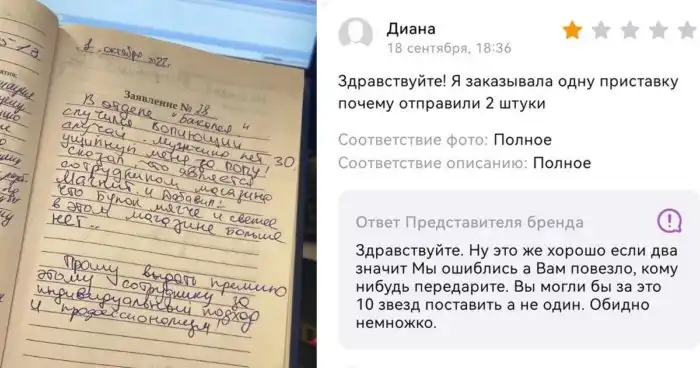 1 октября 2022г.
Заявление № 28
В отделе "Бакалея"
случился вопиющий
случай. Мужчина лет 30,
ущипнул меня за попу!
сказал что является
сотрудником магазина
Магнит. И добавил:
что булок мягче и свежее
в этом магазине больше
нет..
Прошу выдать премию
этому сотруднику за
индивидуальный подход
и профессионализм!
Диана
18 сентября, 18:36
Здравствуйте! Я заказывала одну приставку
почему отправили 2 штуки
Соответствие фото: Полное
Соответствие описанию: Полное
Ответ Представителя бренда
Здравствуйте. Ну это же хорошо если два
значит Мы ошиблись а Вам повезло, кому
нибудь передарите. Вы могли бы за это
10 звезд поставить а не один. Обидно
немножко.